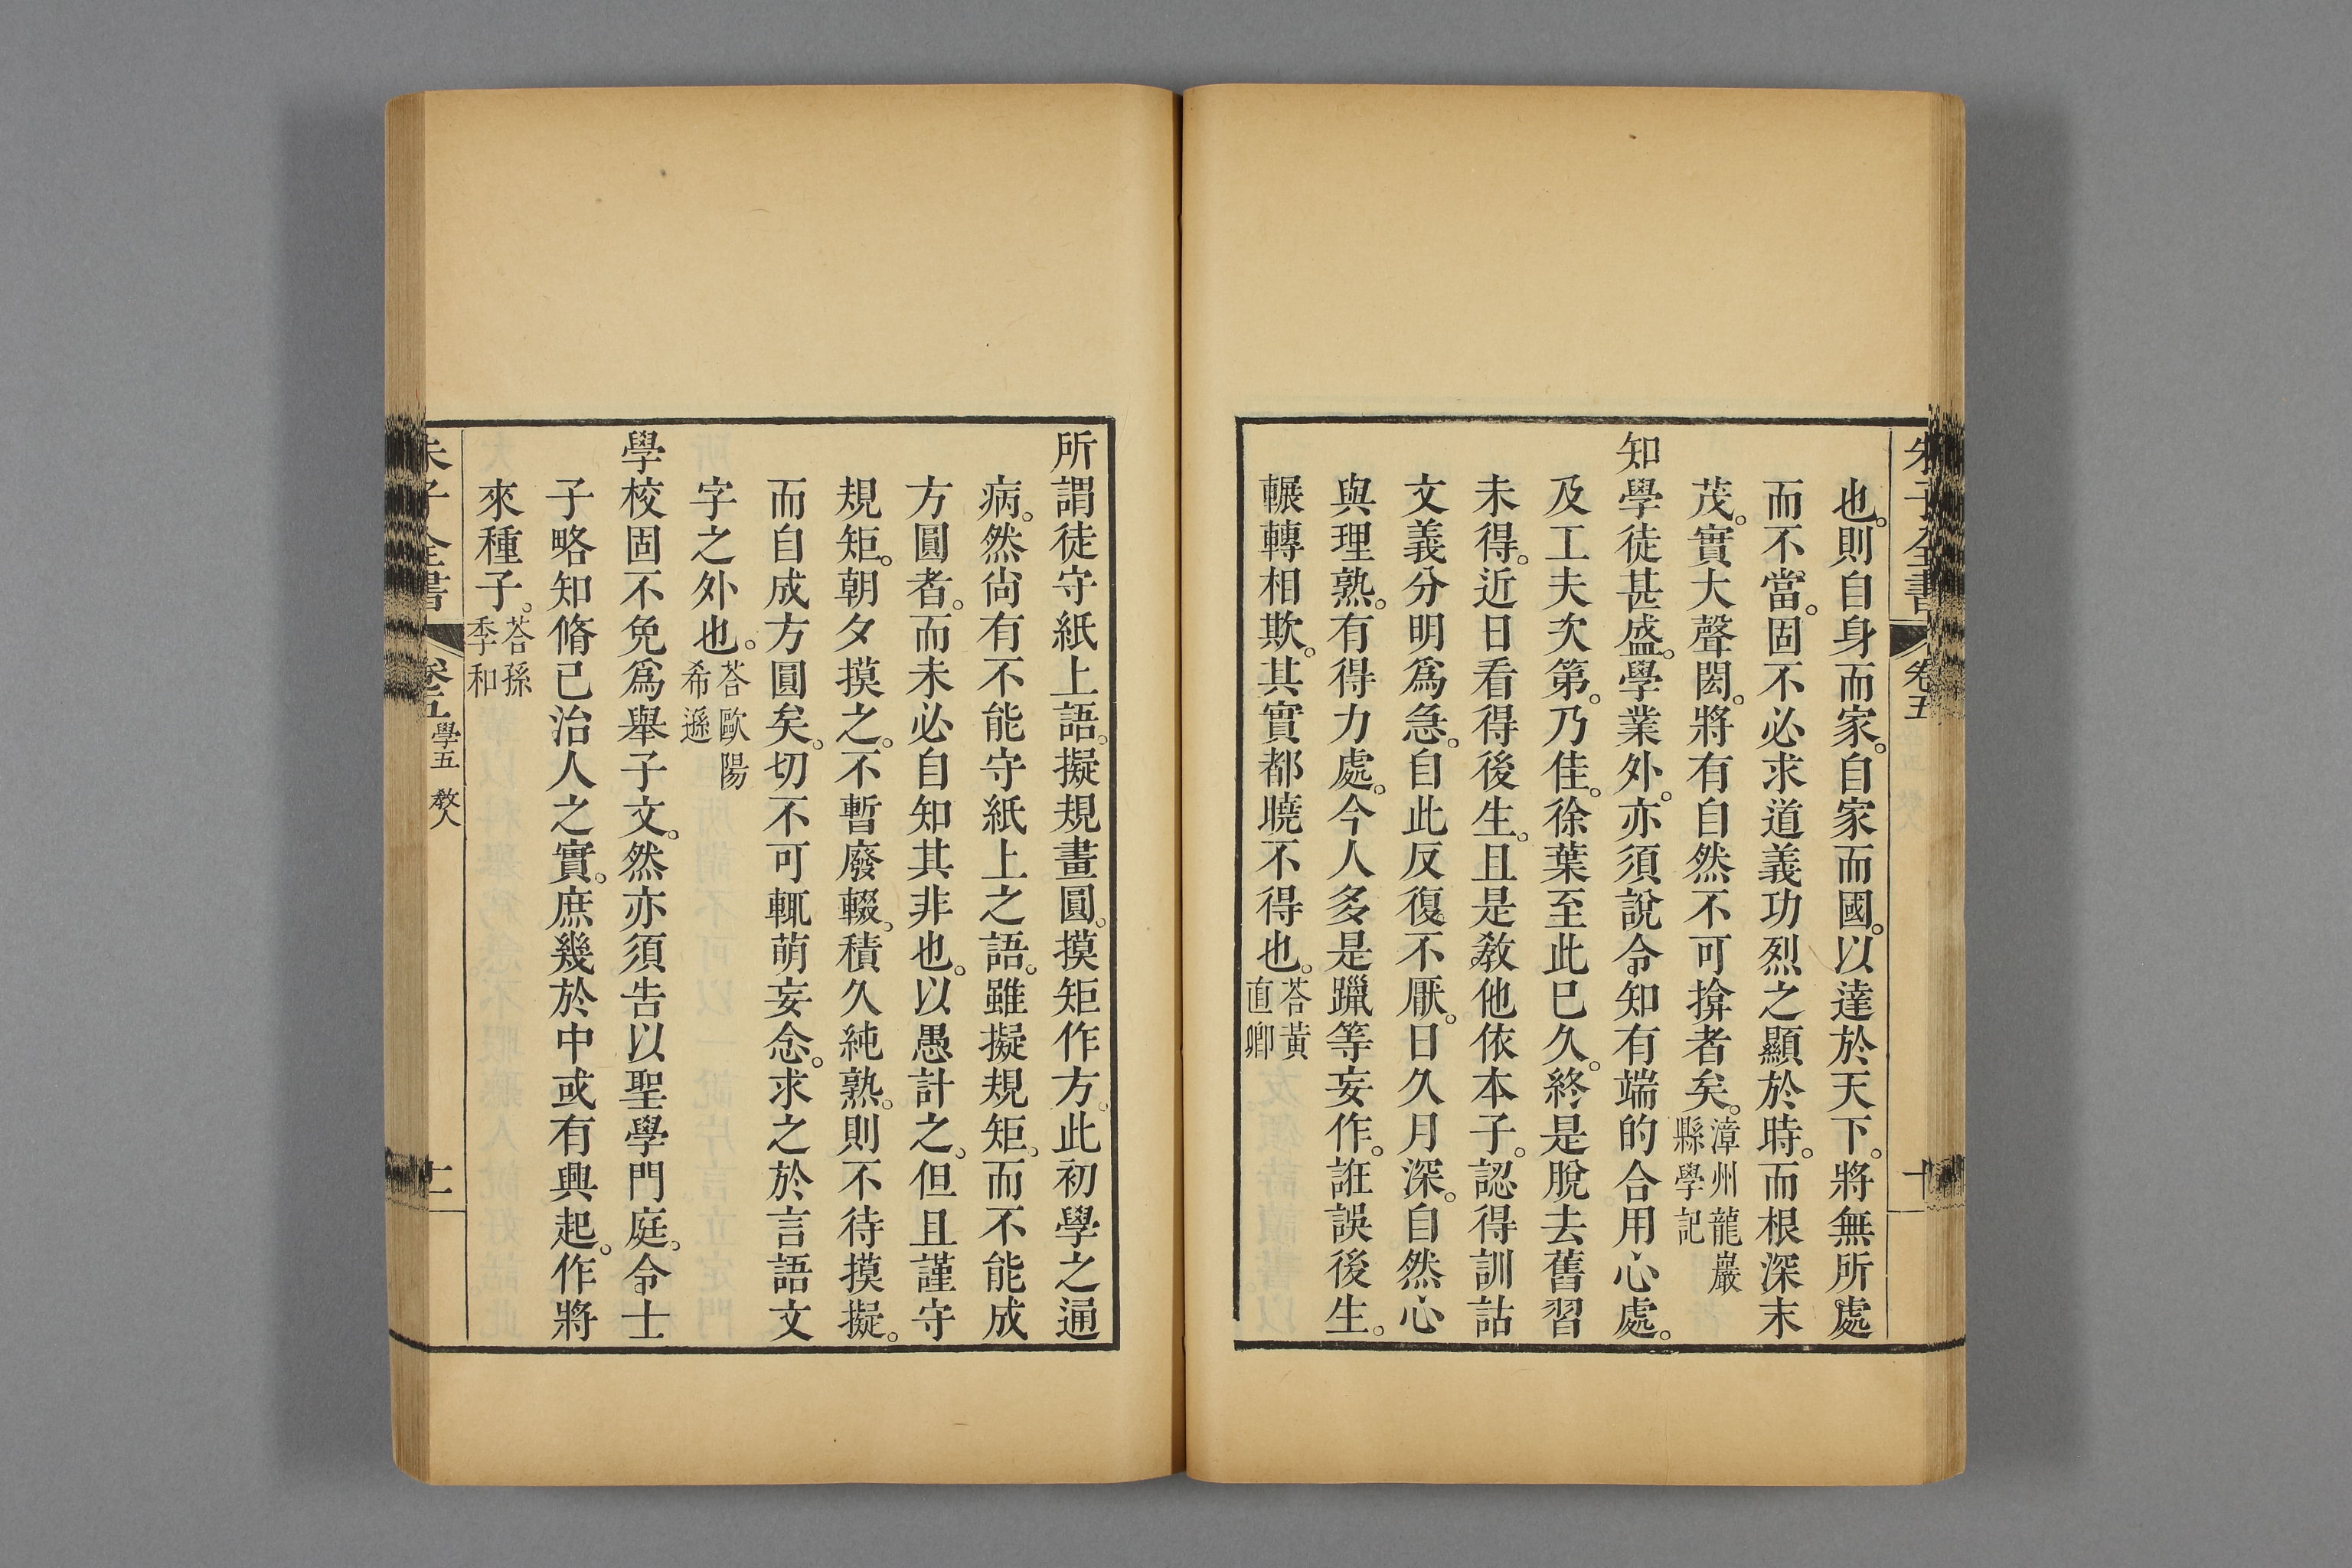 朱子全書 卷五 十
也。則自身而家。自家而國。以達於天下。將無所處
而不當。固不必求道義功烈之顯於時。而根深末
茂。實大聲閎。將有自然不可揜者矣。漳州龍巖縣學記
知學徒甚盛。學業外。亦須說令知有端的合用心處。
及工夫次第。乃佳。徐葉至此已久。終是脫去舊習
未得。近日看得後生。且是教他依本子。認得訓詁
文義分明爲急。自此反復不厭。日久月深。自然心
與理熟。有得力處。今人多是躐等妄作。誑誤後生。
輾轉相欺。其實都曉不得也。荅黃直卿
所謂徒守紙上語。擬規畫圓。摸矩作方。此初學之通
病。然尙有不能守紙上之語。雖擬規矩。而不能成
方圓者。而未必自知其非也。以愚計之。但且謹守
規矩。朝夕摸之。不暫廢輟。積久純熟。則不待摸擬。
而自成方圓矣。切不可輒萌妄念。求之於言語文
字之外也。荅歐陽希遜
學校固不免爲舉子文。然亦須告以聖學門庭。令士
子略知脩己治人之實。庶幾於中或有興起。作將
來種子。荅孫季和
朱子全書 卷五 學五 敎人 十一